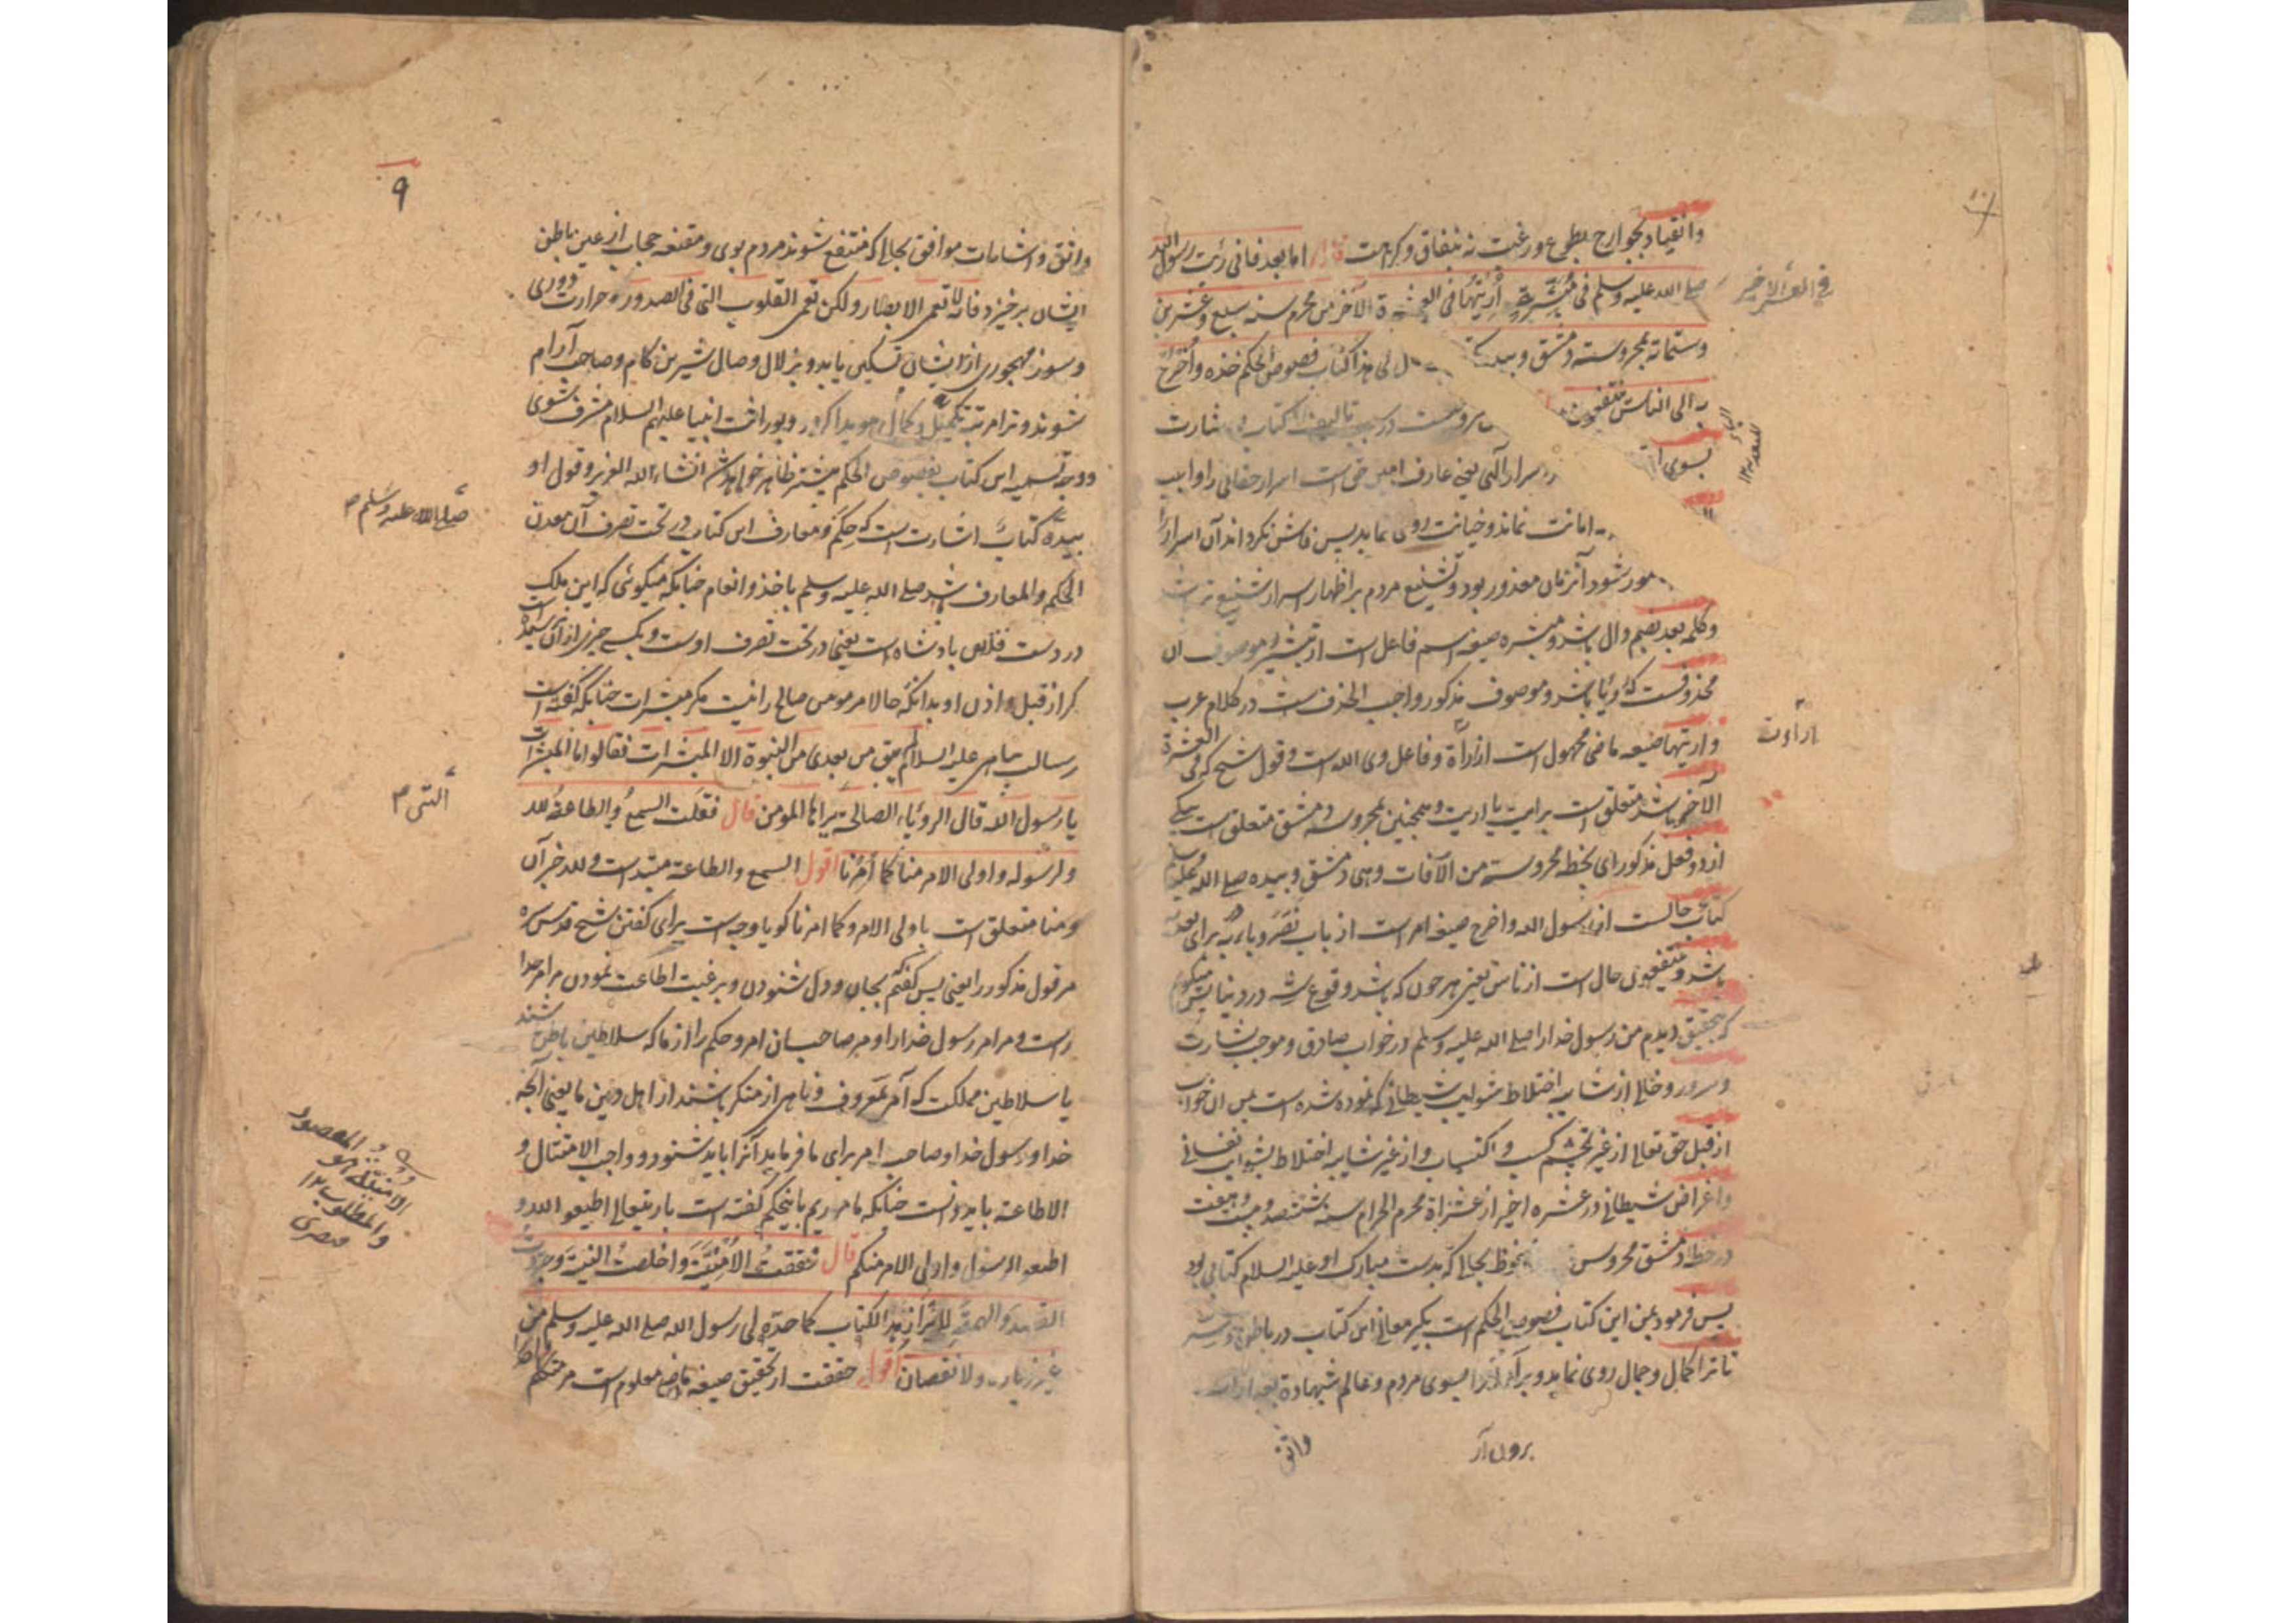 وانقیاد بجوارح بطوع و رغبت نه بنفاق و کراهت قال اما بعد فانی رئیت رسول الله
صلی الله علیه وسلم فی مُبَشِّرَةٍ أُرِیتُها فی العشرة الآخر من محرم سنه سبع و عشرین
فی العشر الاخیر
وستمائة بمحروسة دمشق وبیده لی هذا کتاب فصوص الحکم خذه وأخرج
به الی الناس ینتفعون
در تالیف کتاب شارت
بسوی
اسرار الٓهی یعنی عارف امین حق است اسرار حقانی را واهب
امانت نماند و خیانت روی نماید پس فاش نکرداند آن اسرار را
شود آنزمان معذور بود و تشنیع مردم بر اظهار اسرار شنیع تر باشد
وکلمه بعد بضم دال باشد و مبشره صیغه اسم فاعل است از تبشیر و موصوف ان
محذوفست که رویا باشد و موصوف مذکور واجب الحذف است در کلام عرب
واریتها صیغه ماضی مجهول است از اراءة و فاعل وی الله است و قول شیخ که فی العشرة
الآخر باشد متعلق است برایت یا اریت و همچنین بمحروسه دمشق متعلق است بیکی
ازدو فعل مذکور ای بخطه محروسة من الآفات وهی دمشق و بیده صلی الله علیه وسلم
کتاب حالست از رسول الله و اخرج صیغه امر است از باب نَصَرَ و باء به برای تعدیه
باشد و ینتفعون حال است از ناس یعنی هر چون که باشد وقوع در دنیا پس میکوید
که بتحقیق دیدم من رسول خدا را صلی الله علیه وسلم در خواب صادق و موجب بشارت
و سرور و خالی از شایبه اختلاط شوایب شیطانی که نموده شده است من ان خواب
از قبل حق تعالی از غیر تجشم کسب و اکتساب و از غیر شایبه اختلاط بشوایب نفسانی
واغراض شیطانی در عشره اخیر از محرم الحرام سنه ششصد و بیست و هفت
در خطه دمشق محروس محفوظ بحالی که بدست مبارک او علیه السلام کتابی بود
پس فرمود بمن این کتاب فصوص الحکم است بکیر معانی این کتاب در باطن
تا ترا کمال و جمال روی نماید و بر آرد آنرا بسوی مردم و عالم شهادة بعد از ان
برون آر
واثق
۹
واثق و اشامات موافق بحالی که منتفع شوند مردم بوی و مقنعه حجاب از عین باطن
ایشان برخیزد فانه لا تعمی الابصار ولکن تعمی القلوب التی فی الصدور و حرارت دوری
وسوز مهجوری از ایشان تسکین یابد و بزلال وصال شیرین کام و صاحب آرام
شوند و ترا مرتبه تکمیل و کمال هویدا کردد و بوراثت انبیا علیهم السلام مشرف شوی
و وجه تسمیه این کتاب بفصوص الحکم پیشتر ظاهر خواهد شد انشاء الله العزیز و قول او
صلی الله علیه وسلم
بیده کتاب اشارت است که حِکَم و معارف این کتاب در تحت تصرف آن معدن
الحکم والمعارف باشد صلی الله علیه وسلم باخذ و انعام چنانکه میکوئی که این ملک
در دست فلان پادشاه است یعنی در تحت تصرف اوست و بکسی چیزی از آن نمیرسد
کر از قبل و اذن او بدانکه حالا مر مومن صالح را نیست مکر مبشرات چنانکه کفته است
رسالت پناهی علیه السلام لم یبق من بعدی من النبوة الا المبشرات فقالوا ما المبشرات
یا رسول الله قال الروئیاء الصالحة یراها المومن قال فقلت السمعُ والطاعةُ لله
التی
ولرسوله واولی الامر منا کما أُمِرنا اقول السمع والطاعة مبتدا است و لله خبر آن
ومنا متعلق است باولی الامر و کما امرنا کویا وجه است برای کفتن شیخ قدس سره
مر قول مذکور را یعنی پس کفتم که بجان و دل شنودن و برغبت اطاعت نمودن مر امر خدا
راست و مر امر رسول خدا را و مر صاحبان امر و حکم را از ما که سلاطین باطن باشند
یا سلاطین مملکت که آمر بمعروف و ناهی از منکر باشند از اهل دین ما یعنی آنچه
خدا و رسول خدا و صاحب امر برای ما فرماید آنرا باید شنود و واجب الامتثال و
الاطاعة باید دانست چنانکه ماموریم باینحکم کفته است باریتعالی اطیعوا الله و
اطیعوا الرسول واولی الامر منکم قال فحققتُ الأُمْنِیَّةَ وأخلصتُ النیة وجردت
القصد والهمة لإبراز هذا الکتاب کما حدّه لی رسول الله صلی الله علیه وسلم من
غیر زیادة ولا نقصان اقول حققت از تحقیق صیغه ماضی معلوم است مر متکلم
الامنیة هو المقصود
والمطلوب ۱۲